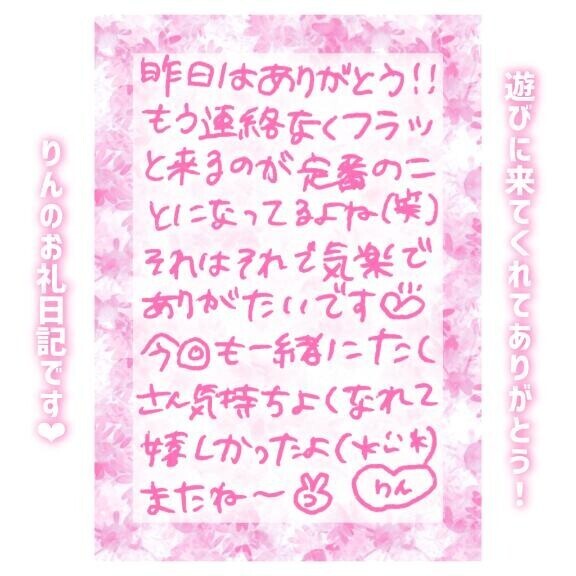 遊びに来てくれてありがとう!
昨日はありがとう!!
もう連絡なくフラッ
と来るのが定番のこ
とになってるよね(笑)
それはそれで気楽で
ありがたいです
今回も一緒にたく
さん気持ちよくなれて
嬉しかったよ(*¨*)
またね〜
りん
りんのお礼日記です❤